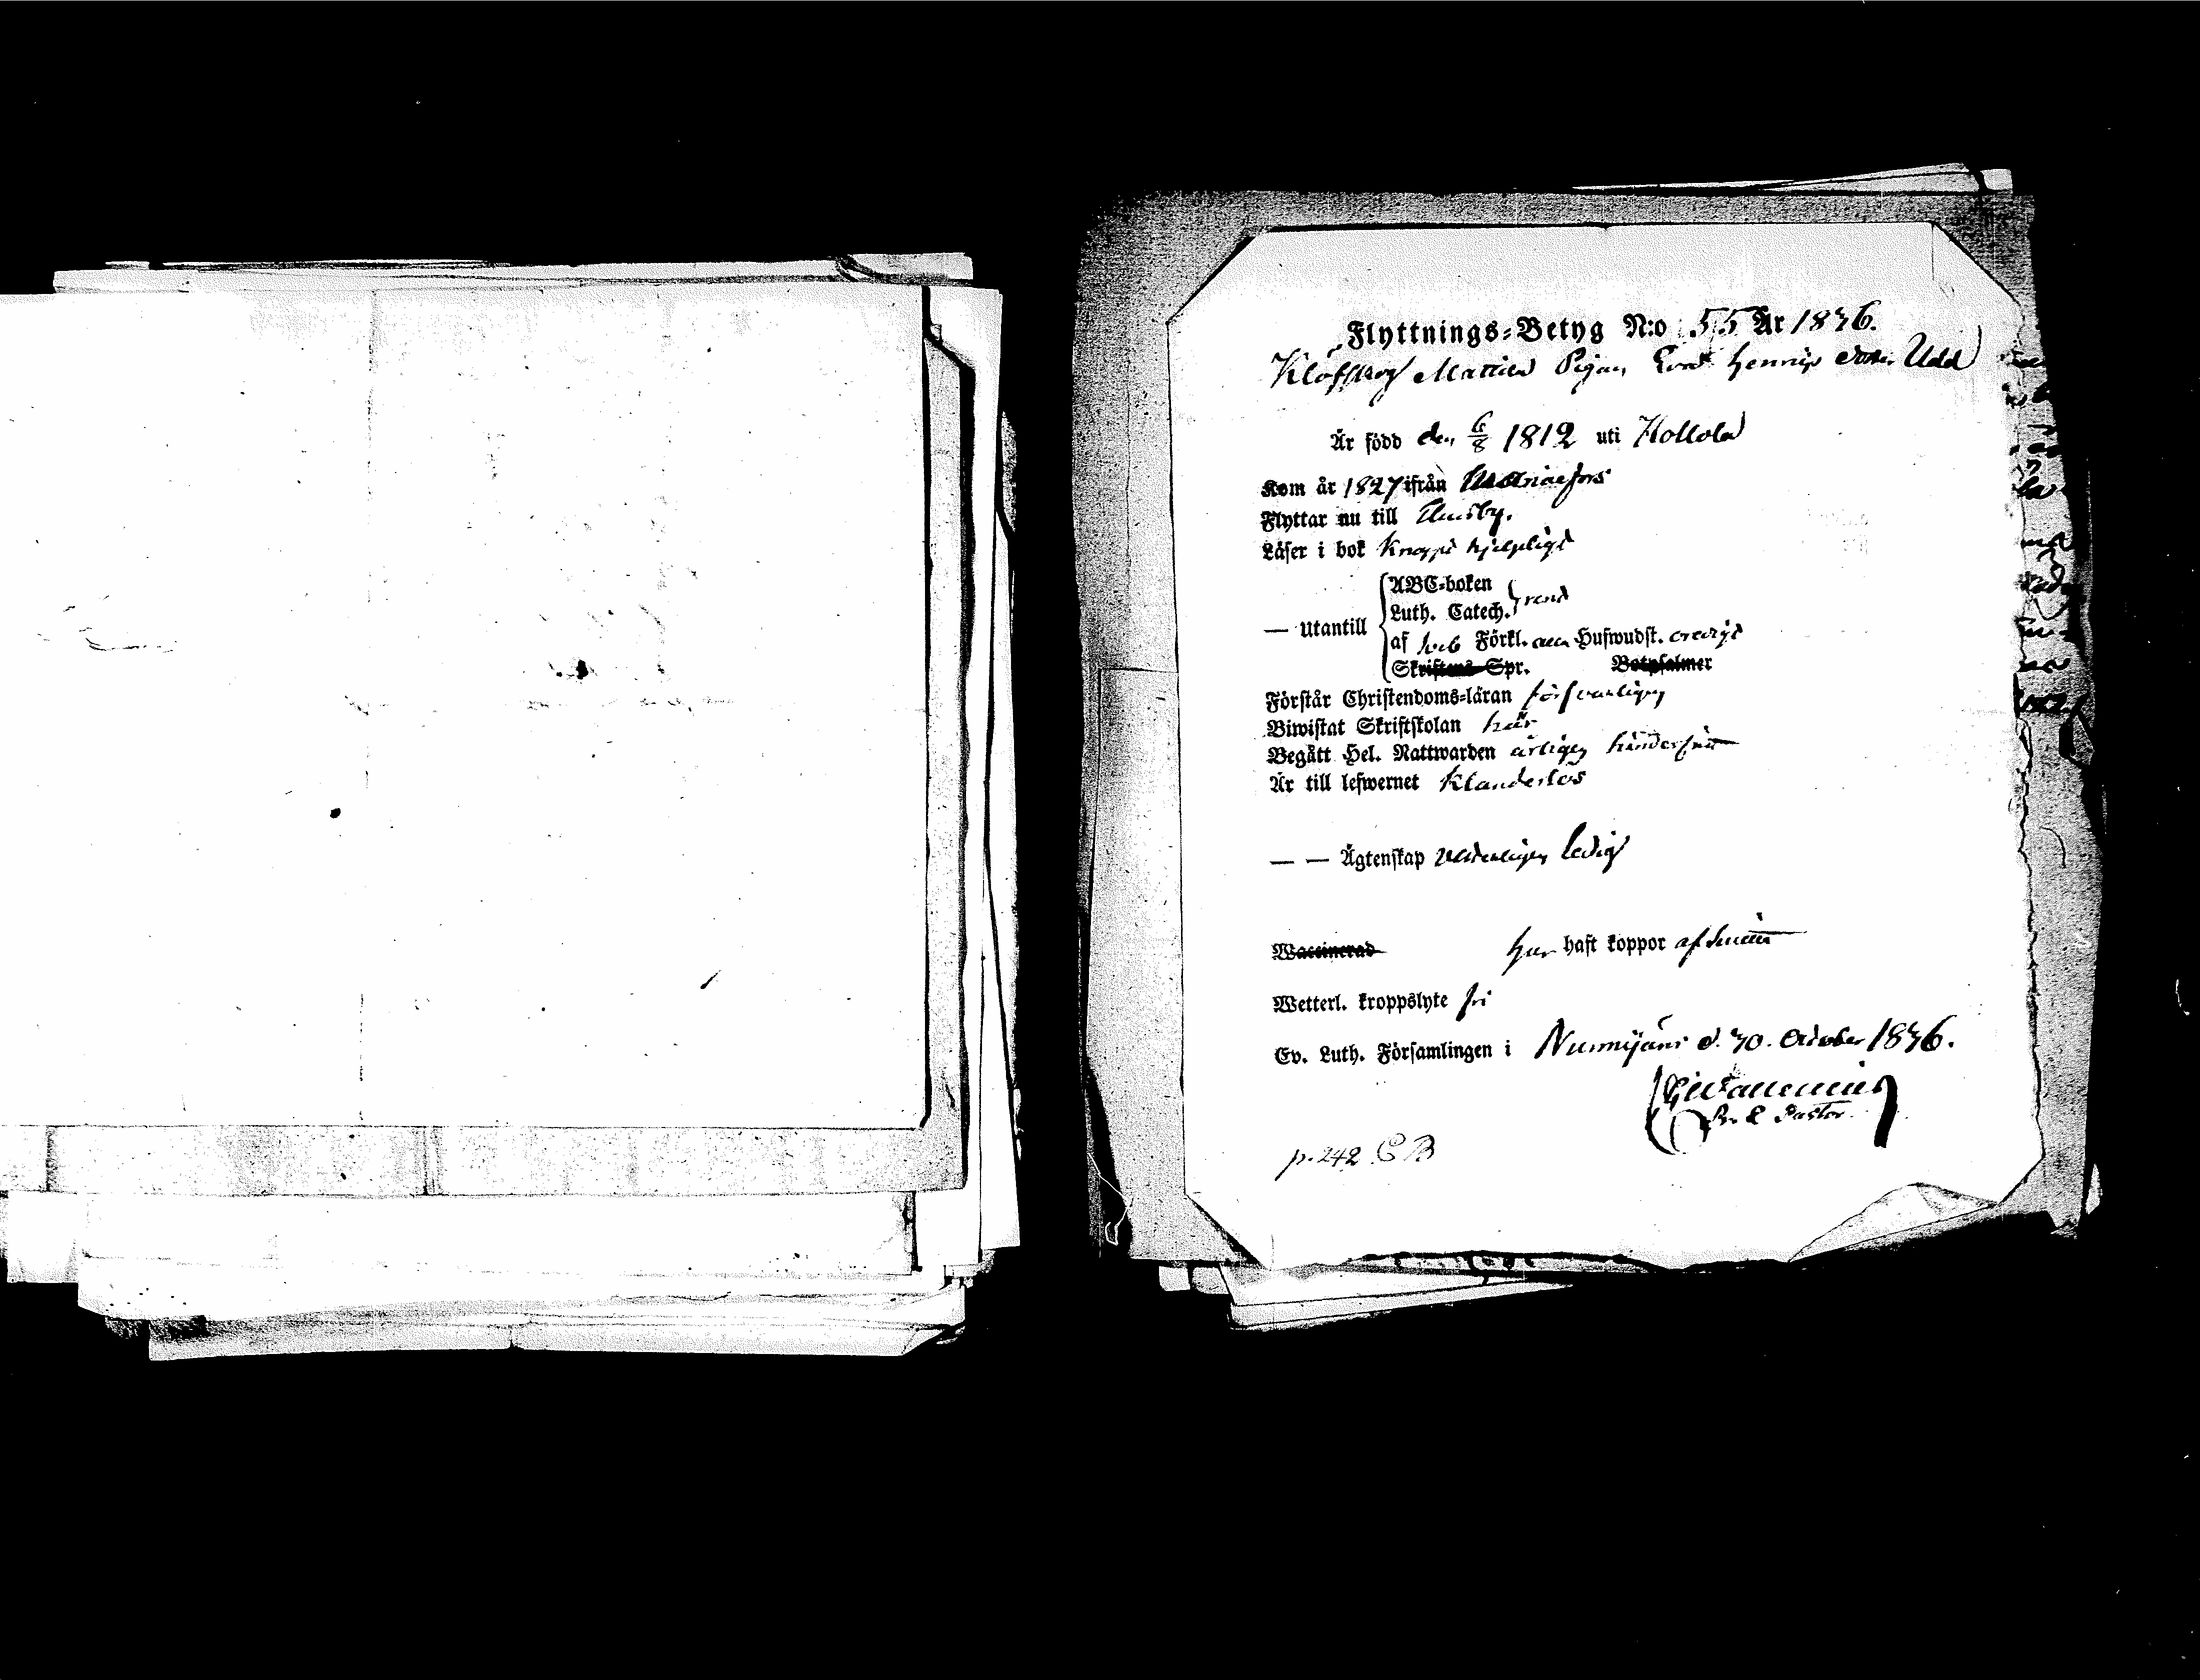 Flyttnings-Betyg N:o 55 År 1836.
Klöfskog Mattila Pigan Eva Henrics dotter Udd
Är född den 6/8 1812 uti Hollola
Kom år 1827 ifrån
Flyttar nu till Thusby.
Läser i bok knappt hjelpligt
ABC-boken
— Utantill Luth. Catech. rent
af Förkl. Husfwudst. oredigt
Skriftens Spr. Botpsalmer
Förstår Christendoms-läran försvarligen
Biwistat Skriftskolan här
Begått Hel. Nattwarden årligen hindersfritt
Är till lefwernet klanderlös
— — Ägtenskap vetterligen ledig
Waccinerad har haft koppor
Wetterl. kroppslyte fri
Ev. Luth. Församlingen i Nurmijärvi d. 30. October 1836.
Pastor.
p. 242 CB